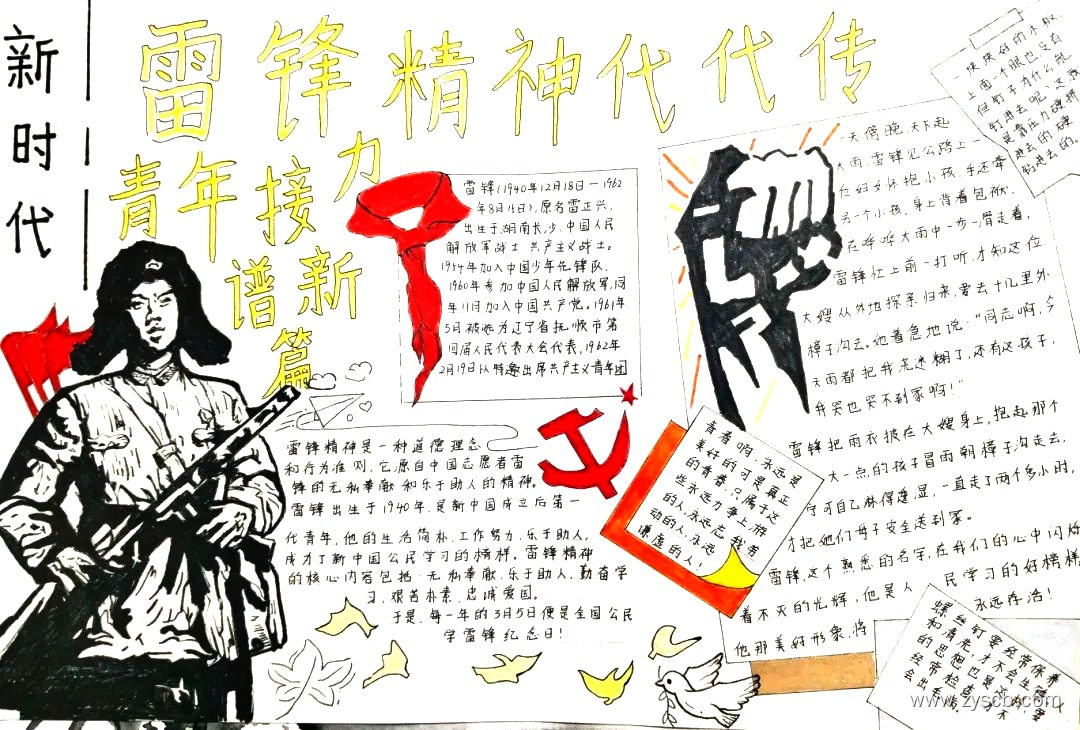 新时代
雷锋精神代代传
青年接力
谱新
篇
雷锋(1940年12月18日—1962
年8月15日),原名雷正兴,
出生于湖南长沙,中国人民
解放军战士 共产主义战士。
1954年加入中国少年先锋队,
1960年参加中国人民解放军,同
年11月加入中国共产党。1961年
5月被选为辽宁省抚顺市第
四届人民代表大会代表,1962年
2月19日以特邀出席共产主义青年团
雷锋精神是一种道德理念
和行为准则,它源自中国志愿者雷
锋的无私奉献和乐于助人的精神。
雷锋出生于1940年,是新中国成立后第一
代青年,他的生活简朴、工作努力、乐于助人,
成为了新中国公民学习的榜样。雷锋精神
的核心内容包括:无私奉献、乐于助人、勤奋学
习、艰苦朴素、忠诚爱国。
于是,每一年的3月5日便是全国公民
学雷锋纪念日!
一块块好的木板,
上面一个眼也没有
但钉子为什么能
钉进去呢?这就
是靠压力硬挤
进去的,硬
钻进去的。
一天傍晚,天下起
大雨,雷锋见公路上一
位妇女怀抱小孩,手还牵
另一个小孩,身上背着包袱,
在哗哗大雨中一步一滑走着,
雷锋忙上前一打听,才知这位
大嫂从外地探亲归来,要去十几里外
樟子沟去。她着急地说:“同志啊,今
天雨都把我浇迷糊了,还有这孩子,
我哭也哭不到家啊!”
雷锋把雨衣披在大嫂身上,抱起那个
大一点的孩子冒雨朝樟子沟走去,
宁可自己淋得透湿,一直走了两个多小时,
才把她们母子安全送到家。
雷锋,这个熟悉的名字,在我们的心中闪烁
着不灭的光辉,他是人民学习的好榜样
他那美好形象,将永远存活!
青春啊,永远是
美好的可是真正
的青春,只属于这
些永远力争上游
的人,永远忘我劳
动的人,永远
谦虚的人!
螺丝钉要经常保养
和清洗,才不会生锈
的思想也是这样,要
经常检查,才不
会出毛病。
www.zyscb.com